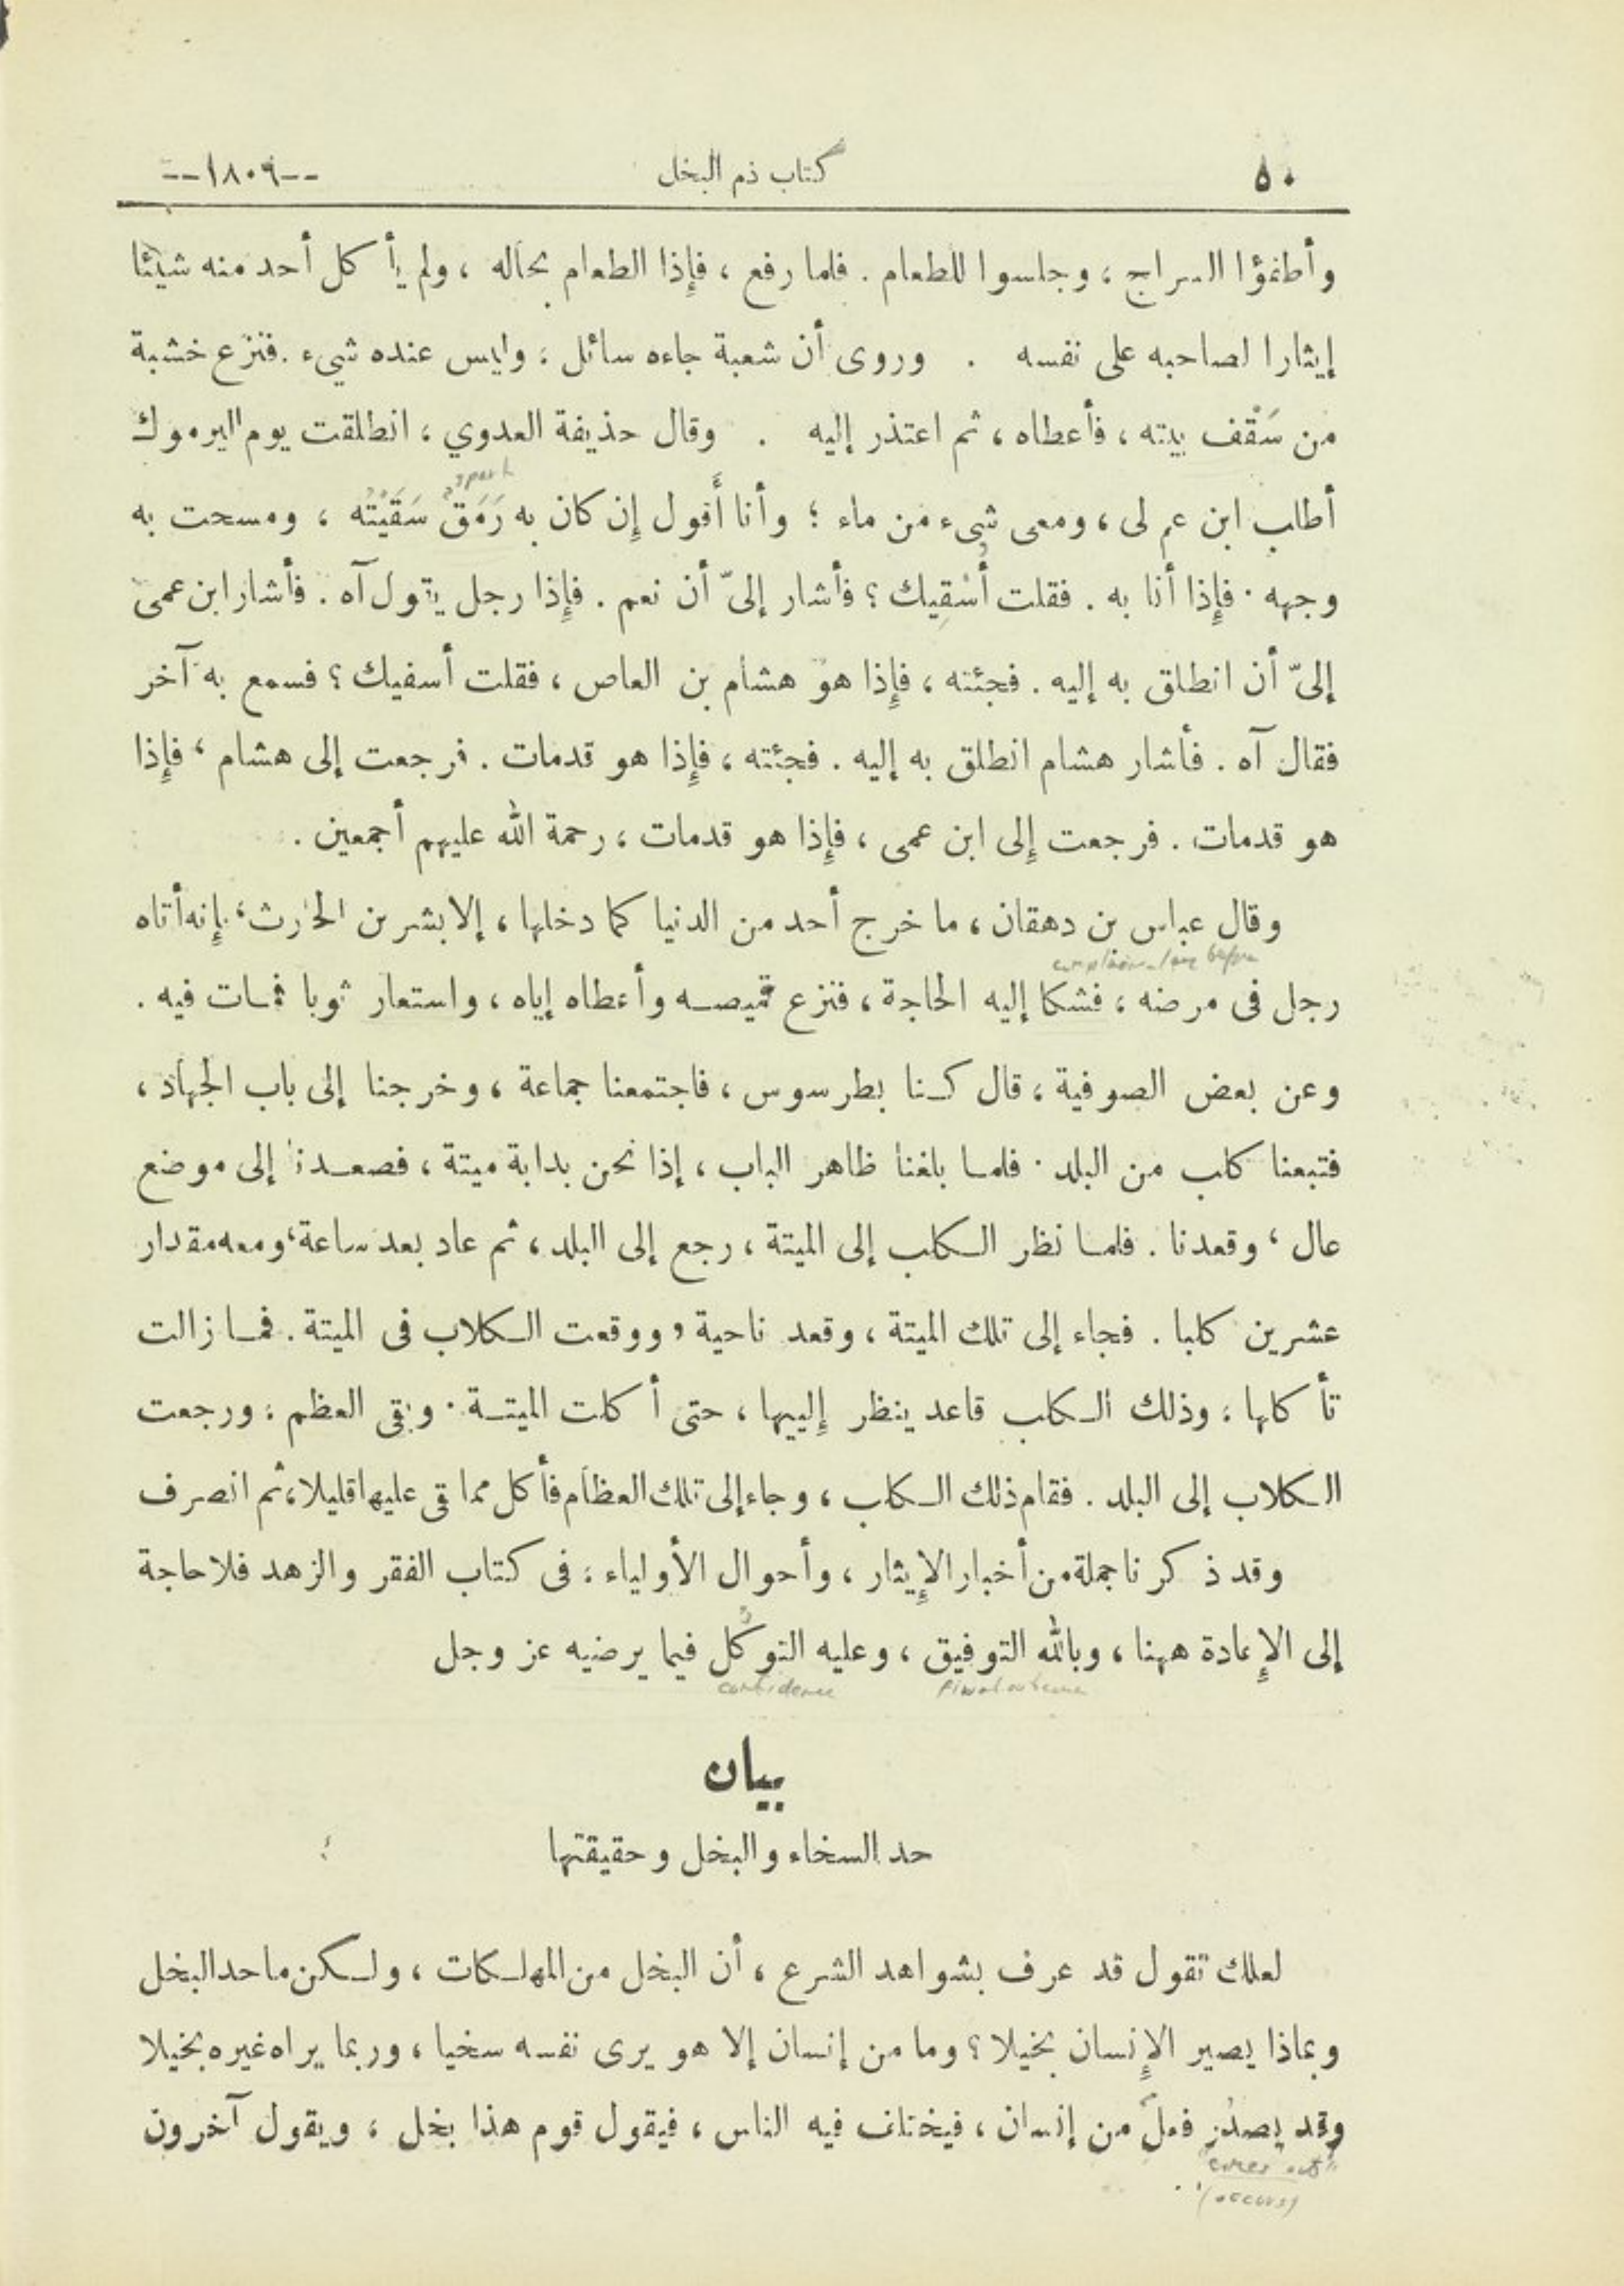 ٥٠ كتاب ذم البخل --١٨٠٩--
وأطفؤا السراج ، وجلسوا للطعام . فلما رفع ، فإذا الطعام بحاله ، ولم يأكل أحد منه شيئا
إيثارا لصاحبه على نفسه . وروى أن شعبة جاءه سائل ، وليس عنده شيء . فنزع خشبة
من سَقْف بيته ، فأعطاه ، ثم اعتذر إليه . وقال حذيفة العدوي ، انطلقت يوم اليرموك
spark
أطلب ابن عم لى ، ومعى شىء من ماء ؛ وأنا أقول إن كان به رَمَقٌ سَقَيْتُه ، ومسحت به
وجهه . فإذا أنا به . فقلت أُسْقِيك ؟ فأشار إلىّ أن نعم . فإذا رجل يقول آه . فأشار ابن عمى
إلىّ أن انطلق به إليه . فجئته ، فإذا هو هشام بن العاص ، فقلت أسقيك ؟ فسمع به آخر
فقال آه . فأشار هشام انطلق به إليه . فجئته ، فإذا هو قدمات . فرجعت إلى هشام ، فإذا
هو قدمات . فرجعت إلى ابن عمى ، فإذا هو قدمات ، رحمة الله عليهم أجمعين .
وقال عباس بن دهقان ، ما خرج أحد من الدنيا كما دخلها ، إلا بشر بن الحارث ، فإنه أتاه
رجل فى مرضه ، فشكا إليه الحاجة ، فنزع قميصه وأعطاه إياه ، واستعار ثوبا فمات فيه .
وعن بعض الصوفية ، قال كنا بطرسوس ، فاجتمعنا جماعة ، وخرجنا إلى باب الجهاد ،
فتبعنا كلب من البلد . فلما بلغنا ظاهر الباب ، إذا نحن بدابة ميتة ، فصعدنا إلى موضع
عال ، وقعدنا . فلما نظر الكلب إلى الميتة ، رجع إلى البلد ، ثم عاد بعد ساعة ، ومعه مقدار
عشرين كلبا . فجاء إلى تلك الميتة ، وقعد ناحية ، ووقعت الكلاب فى الميتة . فما زالت
تأكلها ، وذلك الكلب قاعد ينظر إليها ، حتى أكلت الميتة . وبقى العظم ، ورجعت
الكلاب إلى البلد . فقام ذلك الكلب ، وجاء إلى تلك العظام فأكل مما بقى عليها قليلا ، ثم انصرف
وقد ذكرنا جملة من أخبار الإيثار ، وأحوال الأولياء ، فى كتاب الفقر والزهد فلا حاجة
إلى الإعادة ههنا ، وبالله التوفيق ، وعليه التوكُّل فيما يرضيه عز وجل
confidence
بيان
حد السخاء والبخل وحقيقتها
لعلك تقول قد عرف بشواهد الشرع ، أن البخل من المهلكات ، ولكن ما حد البخل
وبماذا يصير الإنسان بخيلا ؟ وما من إنسان إلا هو يرى نفسه سخيا ، وربما يراه غيره بخيلا
وقد يصدُر فعل من إنسان ، فيختلف فيه الناس ، فيقول قوم هذا بخل ، ويقول آخرون
"comes out"
(occurs)